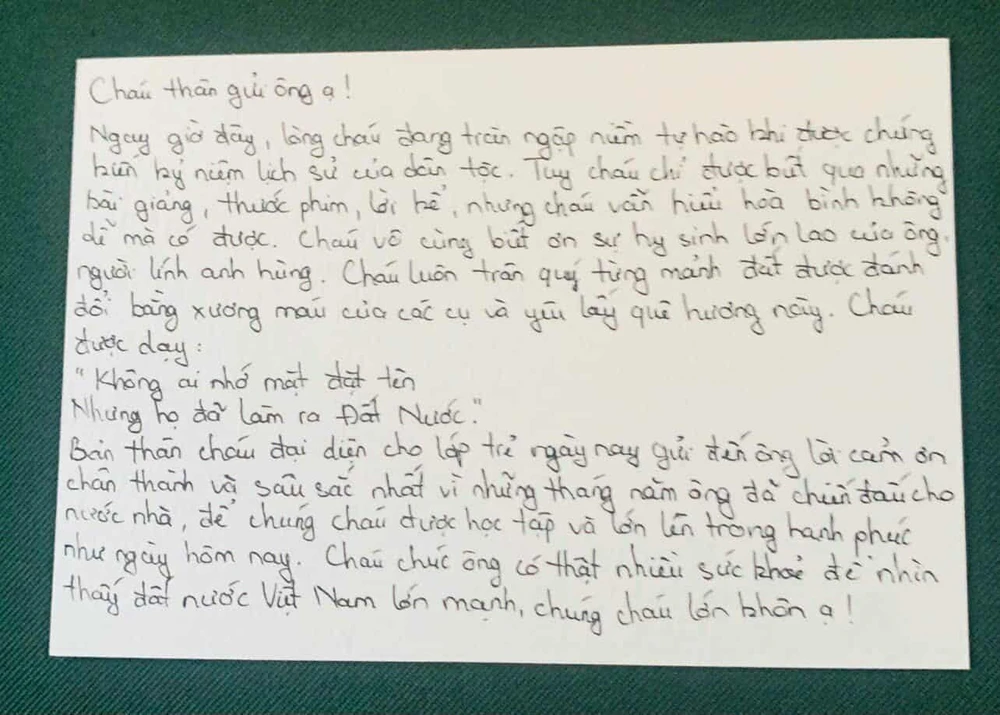 Cháu thân gửi ông ạ!
Ngay giờ đây, lòng cháu đang tràn ngập niềm tự hào khi được chứng
kiến kỷ niệm lịch sử của dân tộc. Tuy cháu chỉ được biết qua những
bài giảng, thước phim, lời kể, nhưng cháu vẫn hiểu hoà bình không
dễ mà có được. Cháu vô cùng biết ơn sự hy sinh lớn lao của ông,
người lính anh hùng. Cháu luôn trân quý từng mảnh đất được đánh
đổi bằng xương máu của các cụ và yêu lấy quê hương này. Cháu
được dạy:
"Không ai nhớ mặt đặt tên
Nhưng họ đã làm ra Đất Nước."
Bản thân cháu đại diện cho lớp trẻ ngày nay gửi đến ông lời cảm ơn
chân thành và sâu sắc nhất vì những tháng năm ông đã chiến đấu cho
nước nhà, để chúng cháu được học tập và lớn lên trong hạnh phúc
như ngày hôm nay. Cháu chúc ông có thật nhiều sức khoẻ để nhìn
thấy đất nước Việt Nam lớn mạnh, chúng cháu lớn khôn ạ!